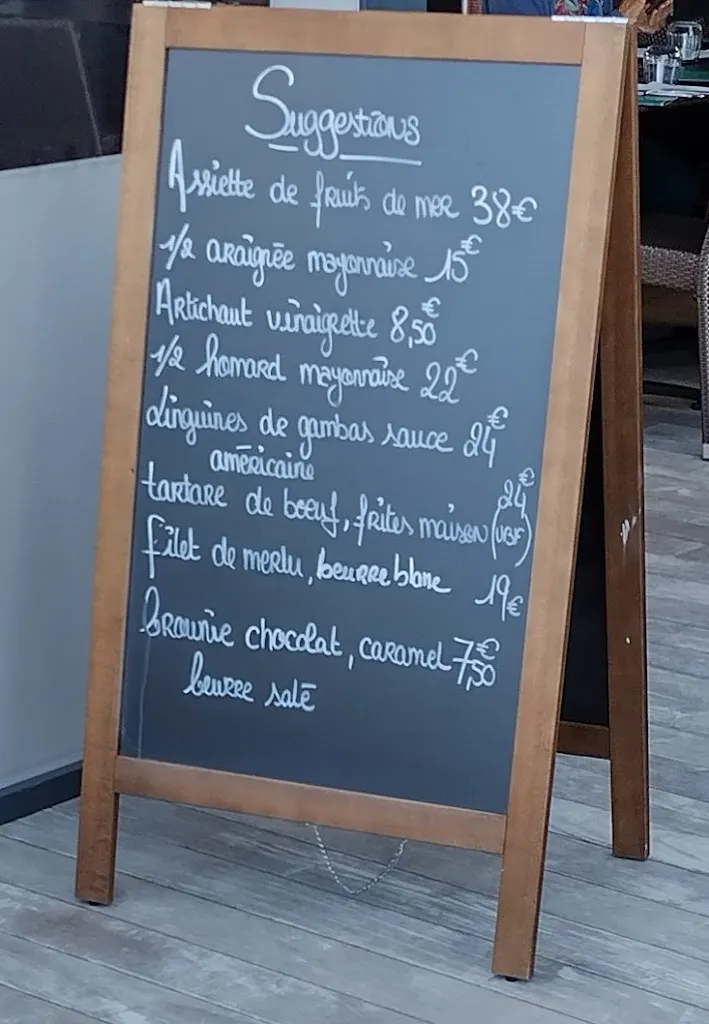 Suggestions
Assiette de fruits de mer 38€
1/2 araignée mayonnaise 15€
Artichaut vinaigrette 8,50€
1/2 homard mayonnaise 22€
Linguines de gambas sauce 24€
américaine
tartare de boeuf, frites maison (VBF) 24€
filet de merlu, beurre blanc 19€
brownie chocolat, caramel 7,50€
beurre salé